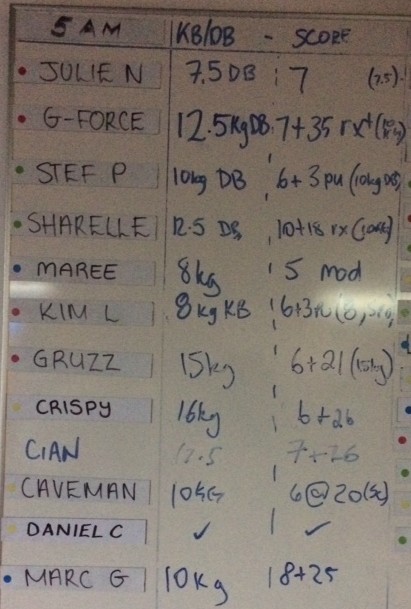 5 AM KB/DB - SCORE
JULIE N 7.5 DB 7 (7.5)
G-FORCE 12.5kg DB 7+35 rx+
STEF P 10kg DB 6+3 pu (10kg DB)
SHARELLE 12.5 DB 10+18 rx
MAREE 8kg 5 mod
KIM L 8kg KB
GRUZZ 15kg 6+21 (15kg)
CRISPY 16kg 6+26
CIAN 12.5 7+26
CAVEMAN 10KG 6@20
DANIEL C ✓ ✓
MARC G 10kg 8+25